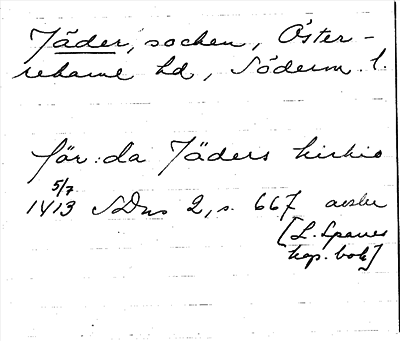 Jäder, socken, Öster-
rekarne hd, Söderm. l.
för: da Jäders kirkio
5/7
1413 SDns 2, s. 667 avskr
[L. Sparres
kop. bok]